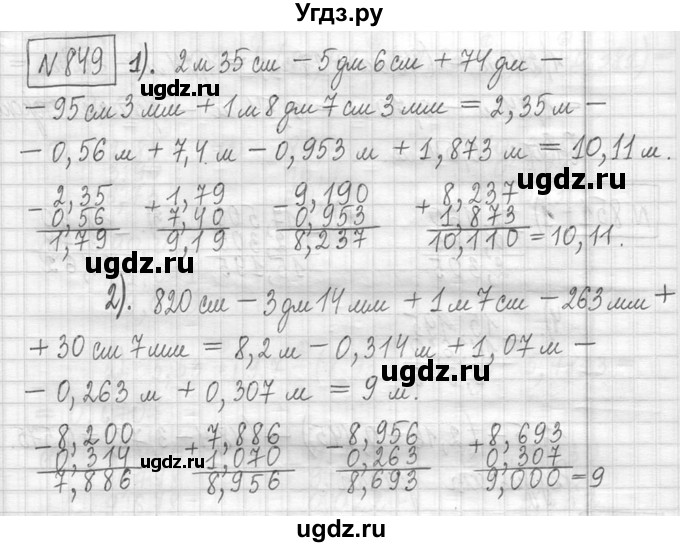 Угдз.ру
№849 1). 2м 35 см – 5дм 6 см + 74 дм –
– 95 см 3 мм + 1м 8 дм 7 см 3 мм = 2,35 м –
– 0,56 м + 7,4 м – 0,953 м + 1,873 м = 10,11 м.
– 2,35 + 1,79 – 9,190 + 8,237
0,56 7,40 0,953 1,873
1,79 9,19 8,237 10,110 = 10,11.
2). 820 см – 3 дм 14 мм + 1 м 7 см – 263 мм +
+ 30 см 7 мм = 8,2 м – 0,314 м + 1,07 м –
– 0,263 м + 0,307 м = 9 м.
– 8,200 + 7,886 – 8,956 + 8,693
0,314 1,070 0,263 0,307
7,886 8,956 8,693 9,000 = 9
ugdz.ru
ugdz.ru
ugdz.ru
ugdz.ru
ugdz.ru
ugdz.ru
ugdz.ru
ugdz.ru